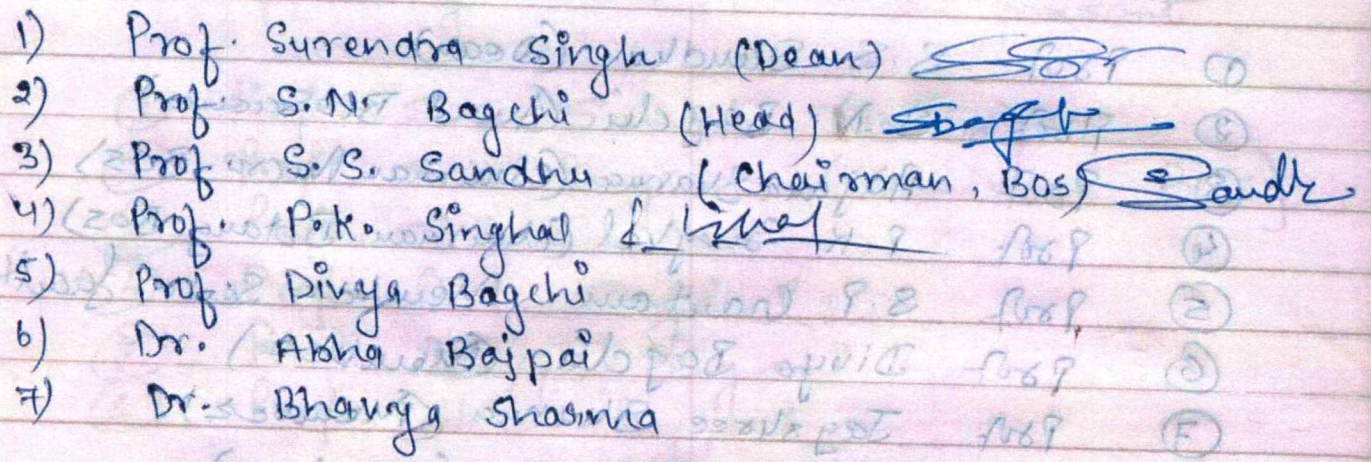 1) Prof. Surendra Singh (Dean)
2) Prof. S.N. Bagchi (Head)
3) Prof. S.S. Sandhu (Chairman, BOS) Sandhu
4) Prof. P.K. Singhal
5) Prof. Divya Bagchi
6) Dr. Abha Bajpai
7) Dr. Bhavya Sharma